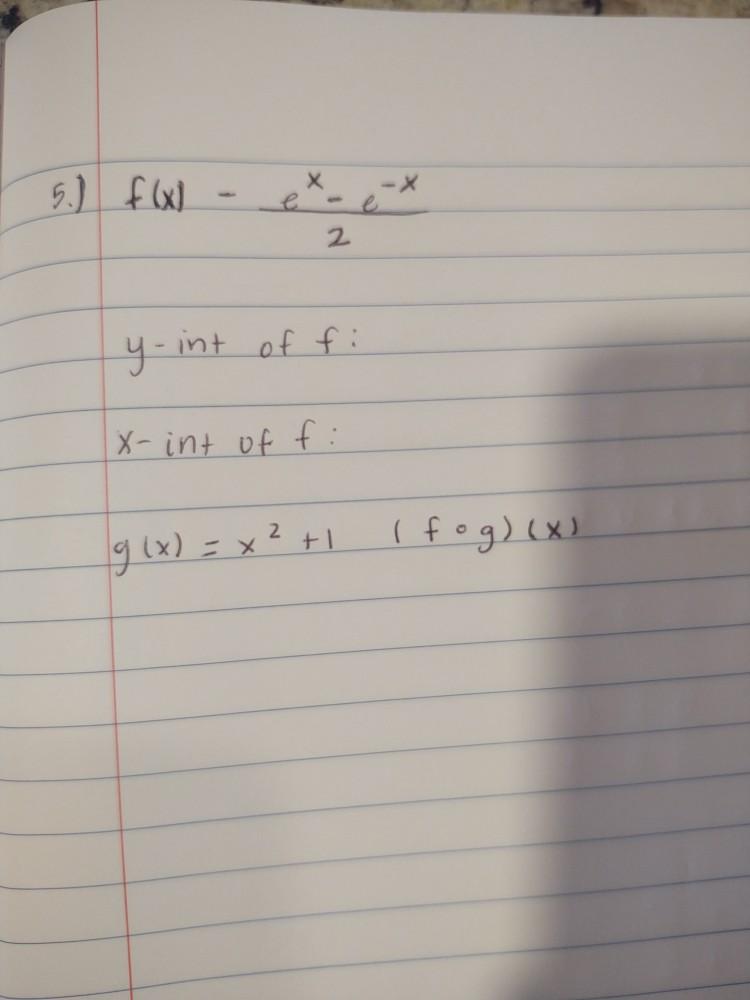 5.) f(x) - e^x - e^-x / 2
y-int of f:
x-int of f:
g(x) = x² +1 (f∘g)(x)